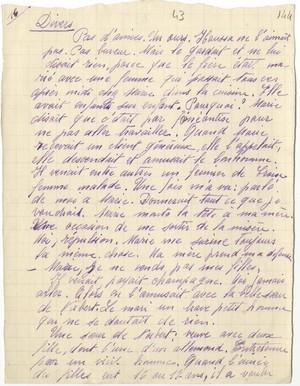 Divers
43
144
Pas d'armes. Un ours. Haussa ne l'aimait
pas. Pas buveur. Mais le gardait et ne lui
disait rien, parce que le frère était ma
rié avec une femme qui passait tous ses
après midis chez Marie dans la cuisine. Elle
avait enfants sur enfant. Pourquoi? Marie
disait que c'était par
ne pas aller travailler. Quand Marie
recevait un client généreux, elle l'appelait,
elle descendait et amusait le bonhomme.
Il venait entre autres un fermier de
femme malade. Une fois m'a vu: parlé
de nous à Marie. Donnerait tout ce que je
voudrais. Marie monta la tête à ma mère.
Une occasion de me sortir de la misère.
Moi, répulsion. Marie me serine toujours
la même chose. Ma mère prend ma défense
– Marie, je ne vends pas mes filles.
Il venait, payait champagne. Mais jamais
Alors on l'amusait avec la belle sœur
de Robert. Le mari un brave petit homme
qui ne se doutait de rien.
Une sœur de Robert: veuve avec deux
fille, dont l'une d'un allemand,
pour un vieil homme. Quand l'aînée
des filles eut 15 ou 16 ans, il a voulu